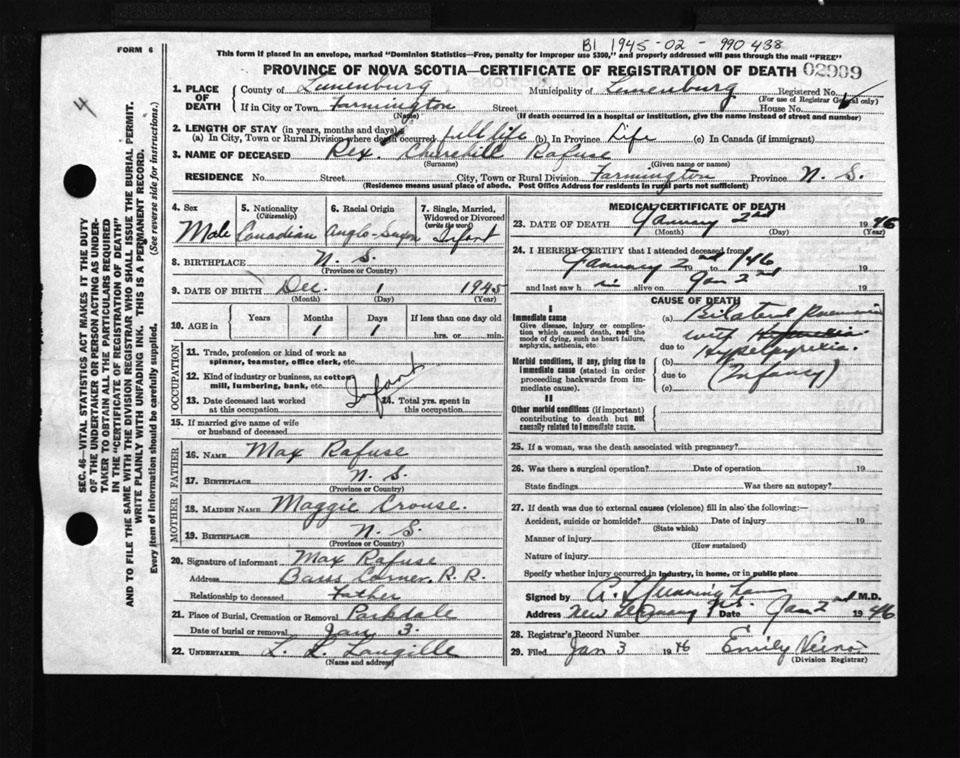 FORM 6
BI 1945-02-990438
This form if placed in an envelope, marked "Dominion Statistics—Free, penalty for improper use $300," and properly addressed will pass through the mail "FREE"
PROVINCE OF NOVA SCOTIA—CERTIFICATE OF REGISTRATION OF DEATH 02909
4
SEC. 46—VITAL STATISTICS ACT MAKES IT THE DUTY
OF THE UNDERTAKER OR PERSON ACTING AS UNDER-
TAKER TO OBTAIN ALL THE PARTICULARS REQUIRED
IN THE "CERTIFICATE OF REGISTRATION OF DEATH"
AND TO FILE THE SAME WITH THE DIVISION REGISTRAR WHO SHALL ISSUE THE BURIAL PERMIT.
WRITE PLAINLY WITH UNFADING INK. THIS IS A PERMANENT RECORD.
Every item of information should be carefully supplied. (See reverse side for instructions.)
1. PLACE OF DEATH
County of Lunenburg Municipality of Lunenburg Registered No.
(For use of Registrar General only)
If in City or Town Farmington Street House No.
(Name) (If death occurred in a hospital or institution, give the name instead of street and number)
2. LENGTH OF STAY (in years, months and days)
(a) In City, Town or Rural Division where death occurred full life (b) In Province Life (c) In Canada (if immigrant)
3. NAME OF DECEASED Rex. Churchill Rafuse
(Surname) (Given name or names)
RESIDENCE No. Street City, Town or Rural Division Farmington Province N. S.
(Residence means usual place of abode. Post Office Address for residents in rural parts not sufficient)
4. Sex Male
5. Nationality (Citizenship) Canadian
6. Racial Origin Anglo-Saxon
7. Single, Married, Widowed or Divorced (write the word) Infant
8. BIRTHPLACE N. S.
(Province or Country)
9. DATE OF BIRTH Dec. 1 1945
(Month) (Day) (Year)
10. AGE in Years Months Days If less than one day old
1 1 hrs. or min.
OCCUPATION
11. Trade, profession or kind of work as spinner, teamster, office clerk, etc.
12. Kind of industry or business, as cotton mill, lumbering, bank, etc.
Infant
13. Date deceased last worked at this occupation
14. Total yrs. spent in this occupation
15. If married give name of wife or husband of deceased
FATHER
16. NAME Max Rafuse
17. BIRTHPLACE N. S.
(Province or Country)
MOTHER
18. MAIDEN NAME Maggie Crouse.
19. BIRTHPLACE N. S.
(Province or Country)
20. Signature of informant Max Rafuse
Address Barss Corner. R. R.
Relationship to deceased Father
21. Place of Burial, Cremation or Removal Parkdale
Date of burial or removal Jan 3.
22. UNDERTAKER L. L. Langille
(Name and address)
MEDICAL CERTIFICATE OF DEATH
23. DATE OF DEATH January 2nd 1946
(Month) (Day) (Year)
24. I HEREBY CERTIFY that I attended deceased from
January 2nd 19 to /46 19
and last saw h alive on Jan 2nd 19
CAUSE OF DEATH
I
Immediate cause
Give disease, injury or complication which caused death, not the mode of dying, such as heart failure, asphyxia, asthenia, etc.
(a) Bilateral Pneumonia
with
due to Hyperpyrexia.
Morbid conditions, if any, giving rise to immediate cause (stated in order proceeding backwards from immediate cause).
(b) due to (Infancy)
(c)
II
Other morbid conditions (if important) contributing to death but not causally related to immediate cause.
25. If a woman, was the death associated with pregnancy?
26. Was there a surgical operation? Date of operation 19
State findings Was there an autopsy?
27. If death was due to external causes (violence) fill in also the following:—
Accident, suicide or homicide? Date of injury 19
(State which)
Manner of injury
(How sustained)
Nature of injury
Specify whether injury occurred in industry, in home, or in public place
Signed by M.D.
Address New Germany N.S. Date Jan 2nd 1946
28. Registrar's Record Number
29. Filed Jan 3 1946 Emily
(Division Registrar)